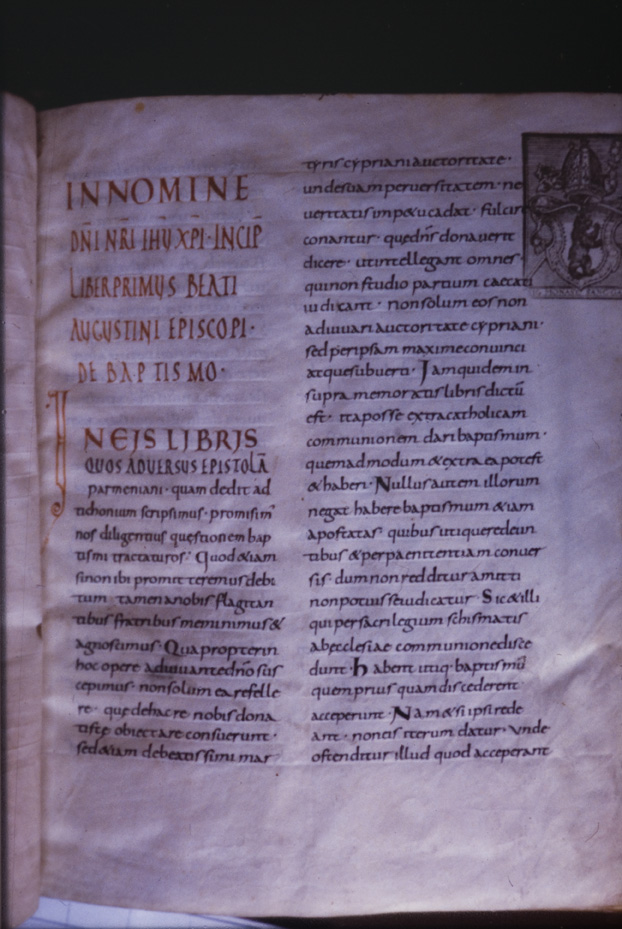 INNOMINE
DÑI NR̃I IHŪ XP̄I·INCIP
LIBERPRIMUS BEATI
AUGUSTINI EPISCOPI·
DE BAPTISMO·
INEIS LIBRIS
QUOS ADVERSUS EPISTOLĀ
parmeniani· quam dedit ad
tichonium scripsimus· promisim
nos diligentius questionem bap
tismi tractaturos· Quod &iam
sinon ibi promitteremus debi
tum· tamen anobis flagitan
tibus fratribus meminimus &
agnoscimus· Quapropter in
hoc opere adiuuante dn̄o sus
cepimus· nonsolum ea refelle
re· que dehac re nobis dona
tiste obiectare consuerunt·
sed &iam debeatissimi mar
tyris cypriani auctoritate·
undesuam peruersitatem· ne
ueritatis impetu cadat· fulcire
conantur· quedn̄s donauerit
dicere· ut intellegant omnes·
qui non studio partium caecati
iudicant· nonsolum eos non
adiuuari auctoritate cypriani·
sed per ipsam maxime conuinci
atque subuerti· Jam quidem in
supra memoratis libris dictū
est· ita posse extra catholicam
communionem dari baptismum·
quemadmodum & extra ea potest
& haberi· Nullus autem illorum
negat habere baptismum &iam
apostatas· quibus utique redeun
tibus & per paenitentiam conuer
sis· dum non redditur amitti
non potuisse iudicatur· Sic & illi
qui per sacrilegium schismatis
ab ecclesiae communione disce
dunt· habent itiq· baptismū
quem prius quam discederent
acceperunt· Nam & si ipsi rede
ant· non eis iterum datur· Vnde
ostenditur illud quod acceperant